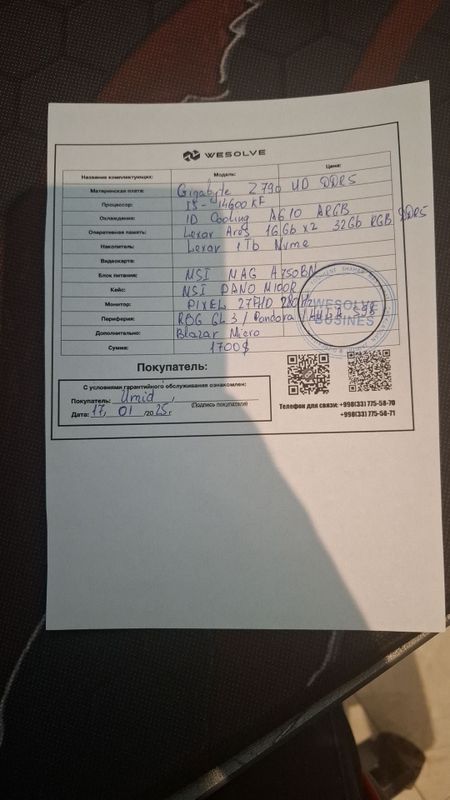 WESOLVE
Название комплектующих: Модель: Цена:
Материнская плата: Gigabyte Z790 UD DDR5
Процессор: I5-14600KF
Охлаждение: ID Cooling A610 ARGB
Оперативная память: Lexar Ares 16Gb x2 32Gb RGB DDR5
Накопитель: Lexar 1Tb Nvme
Видеокарта:
Блок питания: MSI MAG A750BN
Кейс: MSI PANO M100R
Монитор: PIXEL 27FHD
Периферия: GL3 / Pandora /
Дополнительно: Blazar Micro
Сумма: 1700$
WESOLVE
BUSINES
Покупатель:
С условиями гарантийного обслуживания ознакомлен:
Покупатель: Umid,
(Подпись покупателя)
Дата: 17, 01 /2025 г.
Телефон для связи: +998(33) 775-58-70
+998(33) 775-58-71